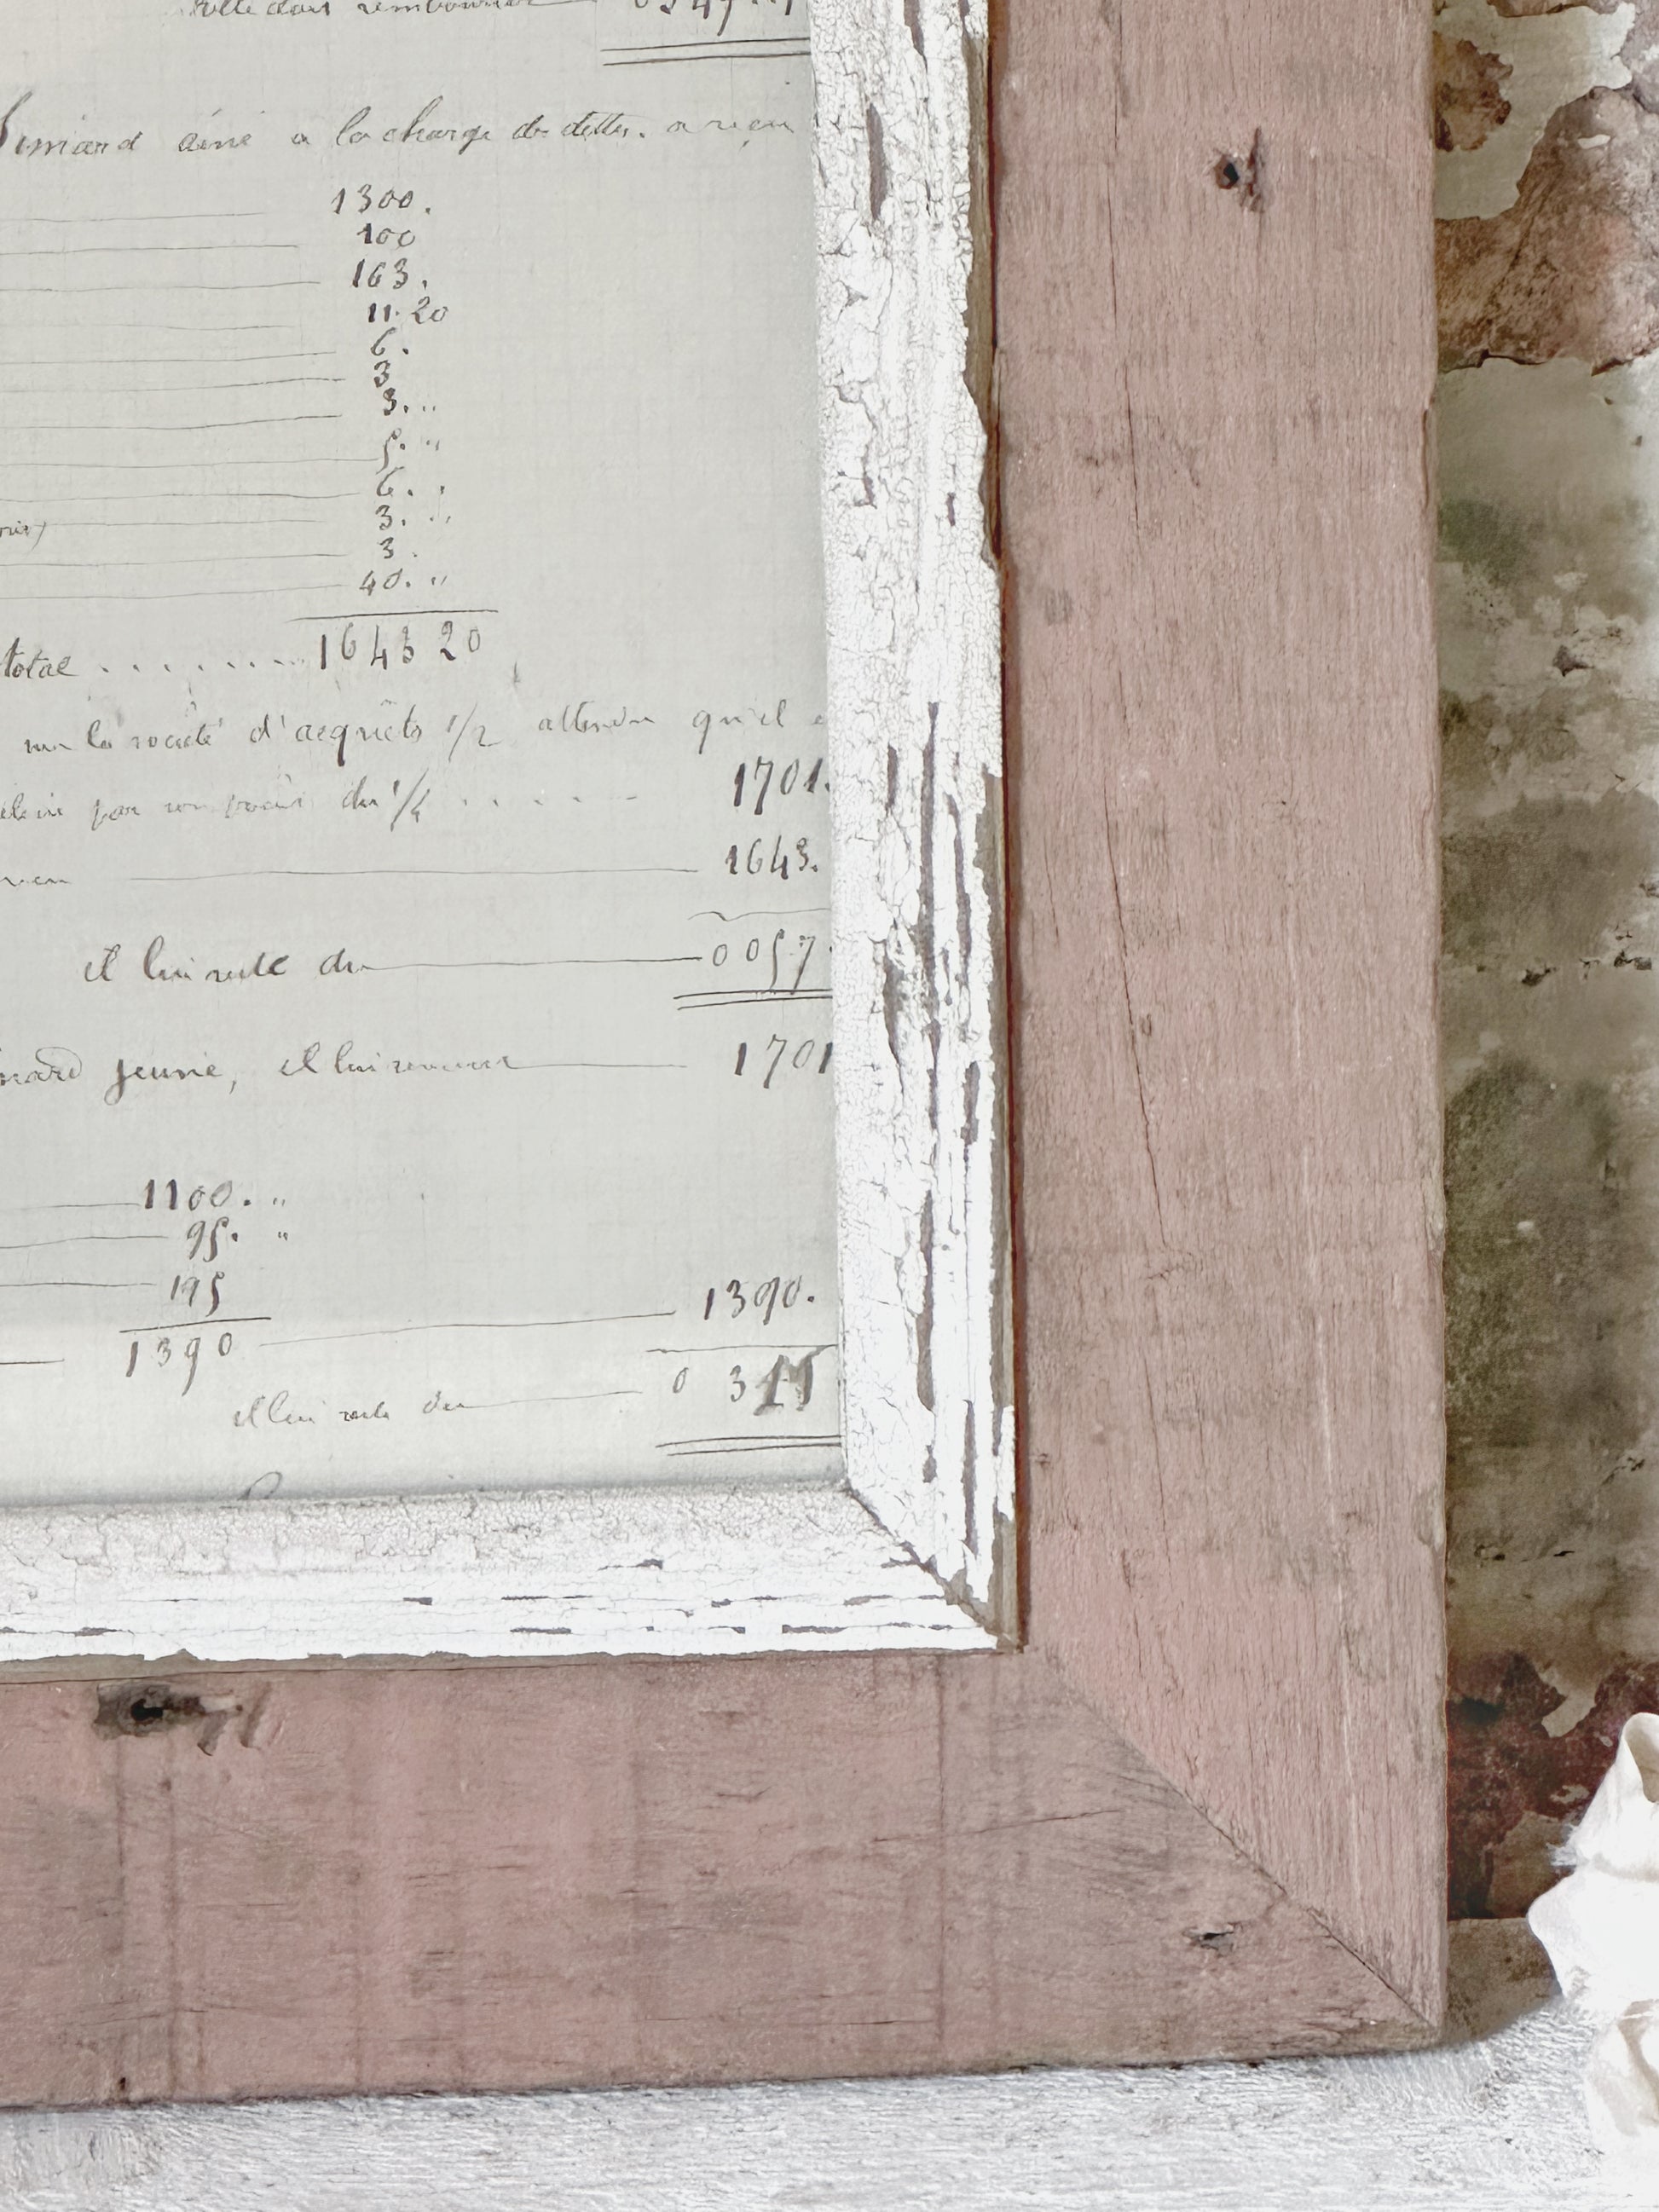 aîné a la charge de dettes. a reçu
1300.
100
163.
11.20
6.
3
3. "
5. "
6. "
3. "
3.
40. "
total ........ 1643 20
sur la société d'acquêts 1/2 attendu qu'il
par son du 1/4 .....
1701.
1643.
il lui reste du 0057
jeune, il lui revient 1701
1100. "
95. "
195
1390 1390.
il lui reste du 0 3